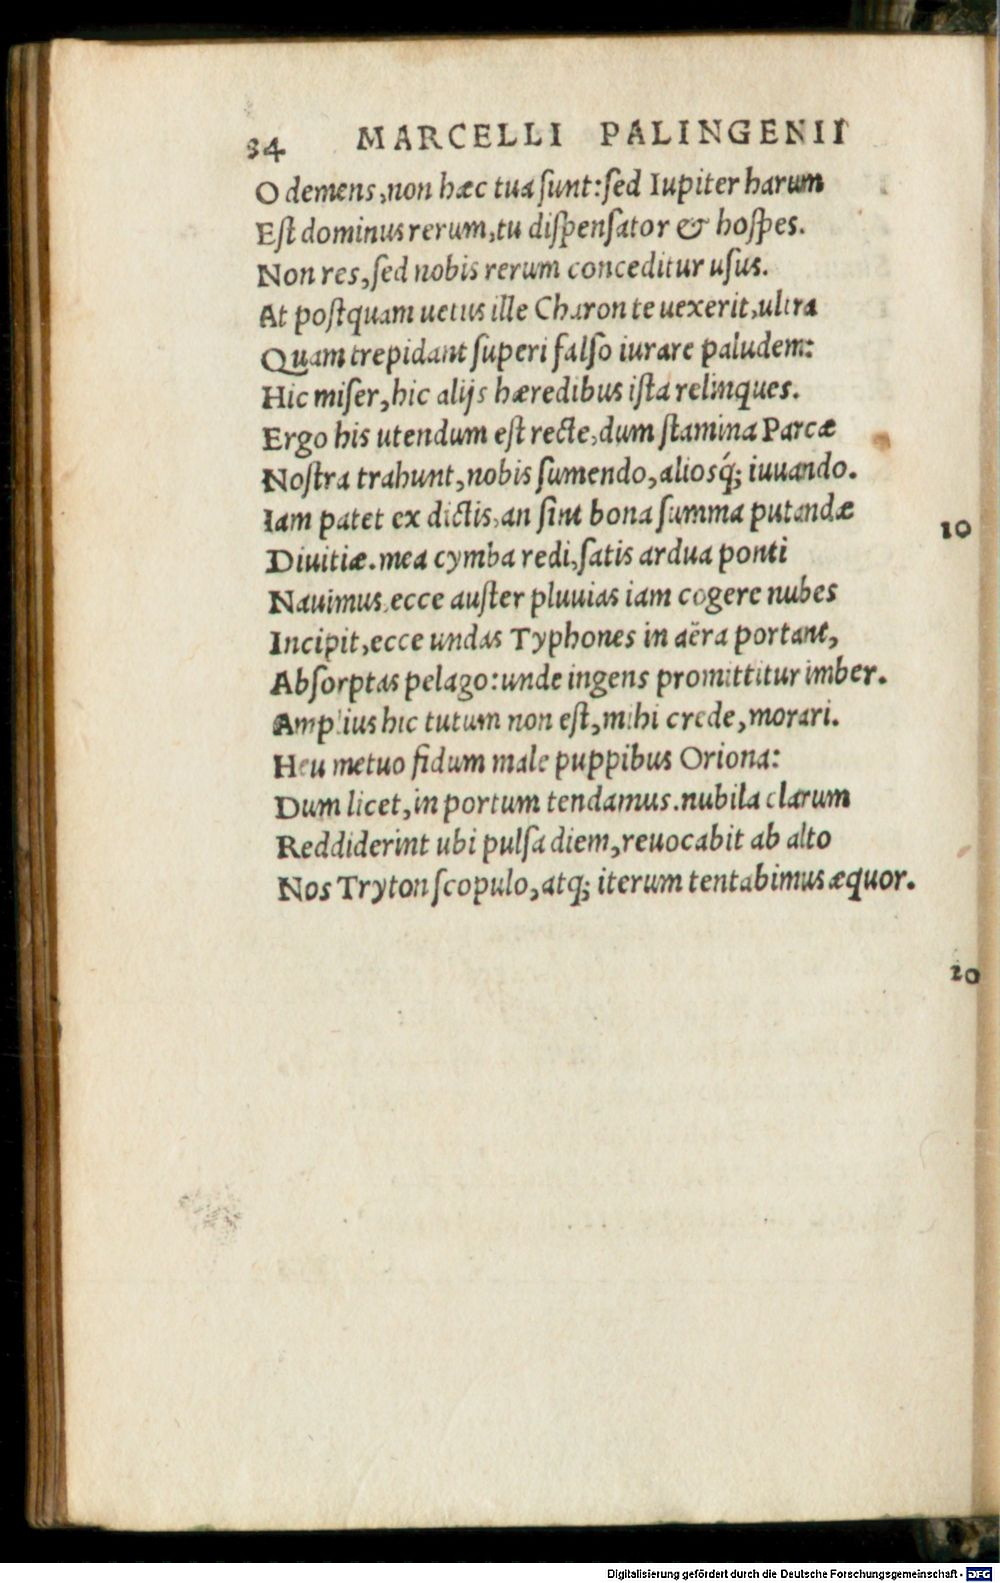 34 MARCELLI PALINGENII
O demens, non hæc tua ſunt: ſed Iupiter harum
Eſt dominus rerum, tu diſpenſator & hoſpes.
Non res, ſed nobis rerum conceditur uſus.
At poſtquam uetus ille Charon te uexerit, ultra
Quam trepidant ſuperi falſo iurare paludem:
Hic miſer, hic alijs hæredibus iſta relinques.
Ergo his utendum eſt recte, dum ſtamina Parcæ
Noſtra trahunt, nobis ſumendo, aliosq́; iuuando.
Iam patet ex dictis, an ſint bona ſumma putandæ
Diuitiæ. mea cymba redi, ſatis ardua ponti
Nauimus, ecce auſter pluuias iam cogere nubes
Incipit, ecce undas Typhones in aëra portant,
Abſorptas pelago: unde ingens promittitur imber.
Amplius hic tutum non eſt, mihi crede, morari.
Heu metuo fidum male puppibus Oriona:
Dum licet, in portum tendamus. nubila clarum
Reddiderint ubi pulſa diem, reuocabit ab alto
Nos Tryton ſcopulo, atq; iterum tentabimus æquor.
10
20
Digitalisierung gefördert durch die Deutsche Forschungsgemeinschaft - DFG